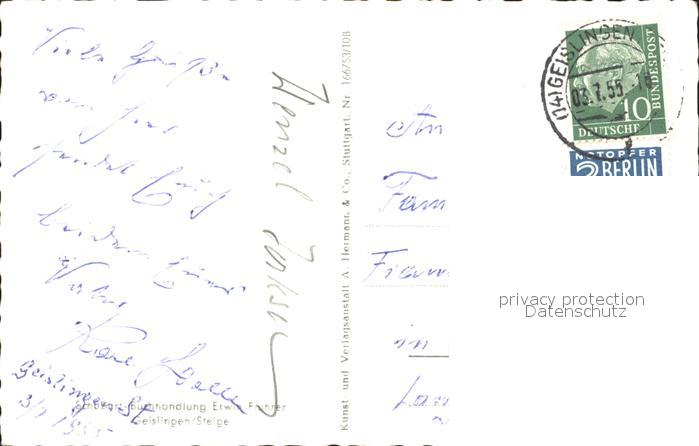 Viele Grüße
von hier
sendet Euch
beiden Euer
Vater
Geislingen St
3/7 1955
Schubart-Buchhandlung Erwin Fahrer
Geislingen/Steige
Wenzel
Kunst- und Verlagsanstalt A. Hermann. & Co., Stuttgart. Nr. 166753/10B
An
Fam
in
(14) GEISLINGEN
03.7.55
10
DEUTSCHE
BUNDESPOST
NOTOPFER
2 BERLIN
privacy protection
Datenschutz